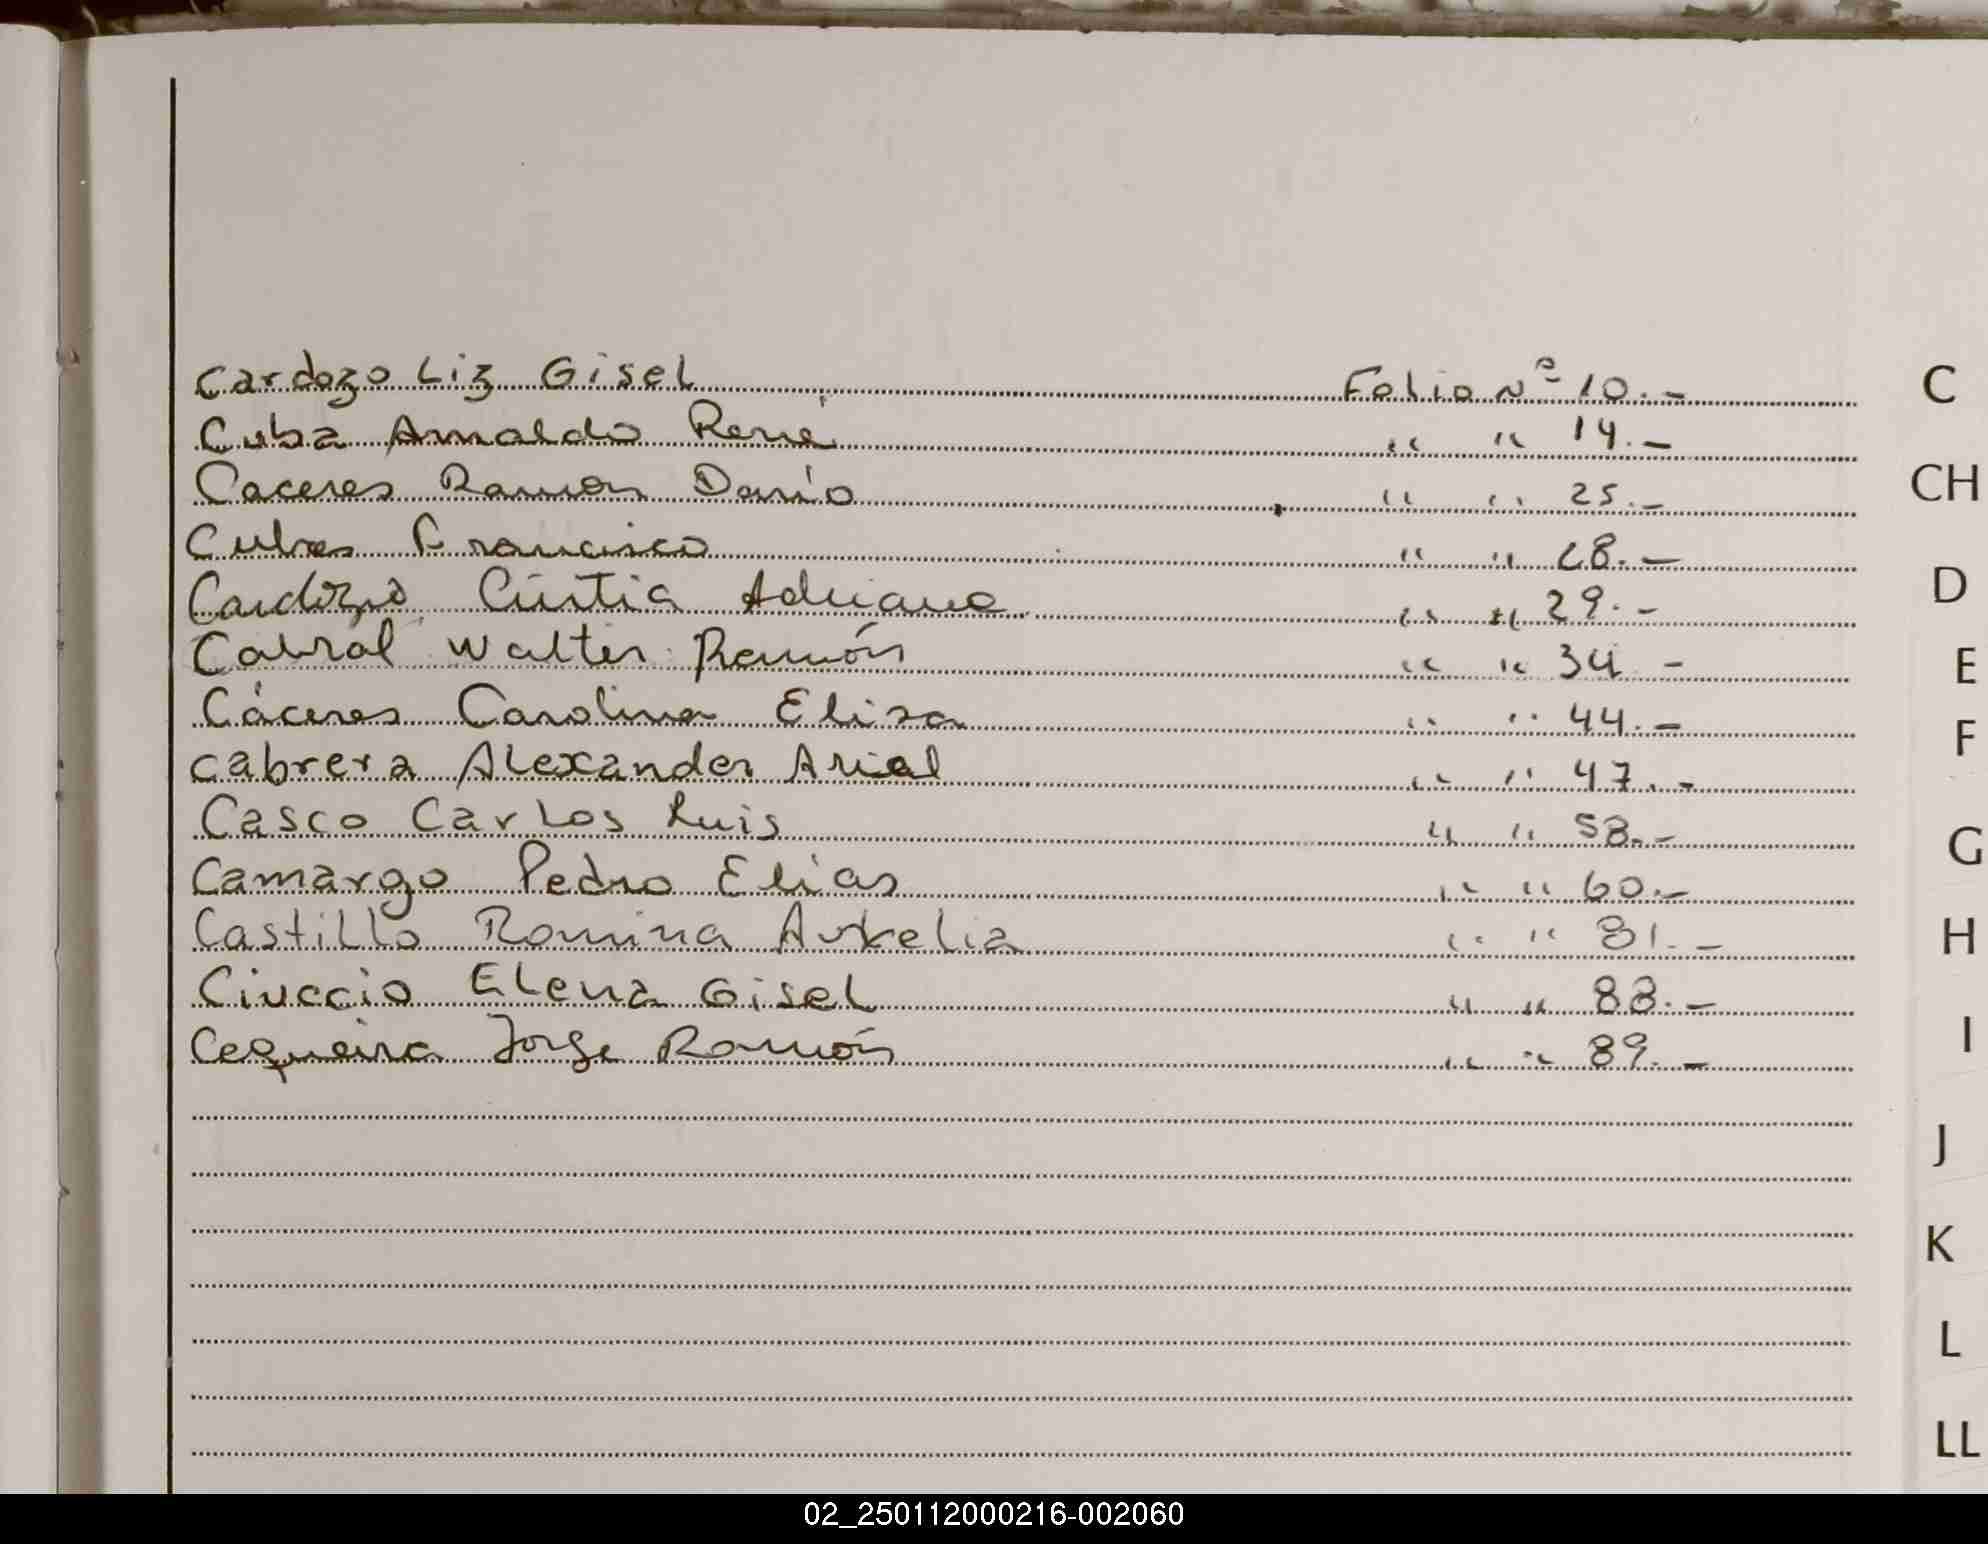 Cardozo Liz Gisel Folio Nº 10.-
Cuba Arnaldo René " " 14.-
Caceres Ramon Darío " " 25.-
Francisco " " 28.-
Cardozo Cintia Adriana " " 29.-
Cabral Walter Ramón " " 34 -
Cáceres Carolina Elisa " " 44.-
Cabrera Alexander Ariel " " 47.-
Casco Carlos Luis " " 58.-
Camargo Pedro Elias " " 60.-
Castillo Romina " " 81.-
Ciuccio Elena Gisel " " 88.-
Cequeira Jorge Ramón " " 89.-
C
CH
D
E
F
G
H
I
J
K
L
LL
02_250112000216-002060